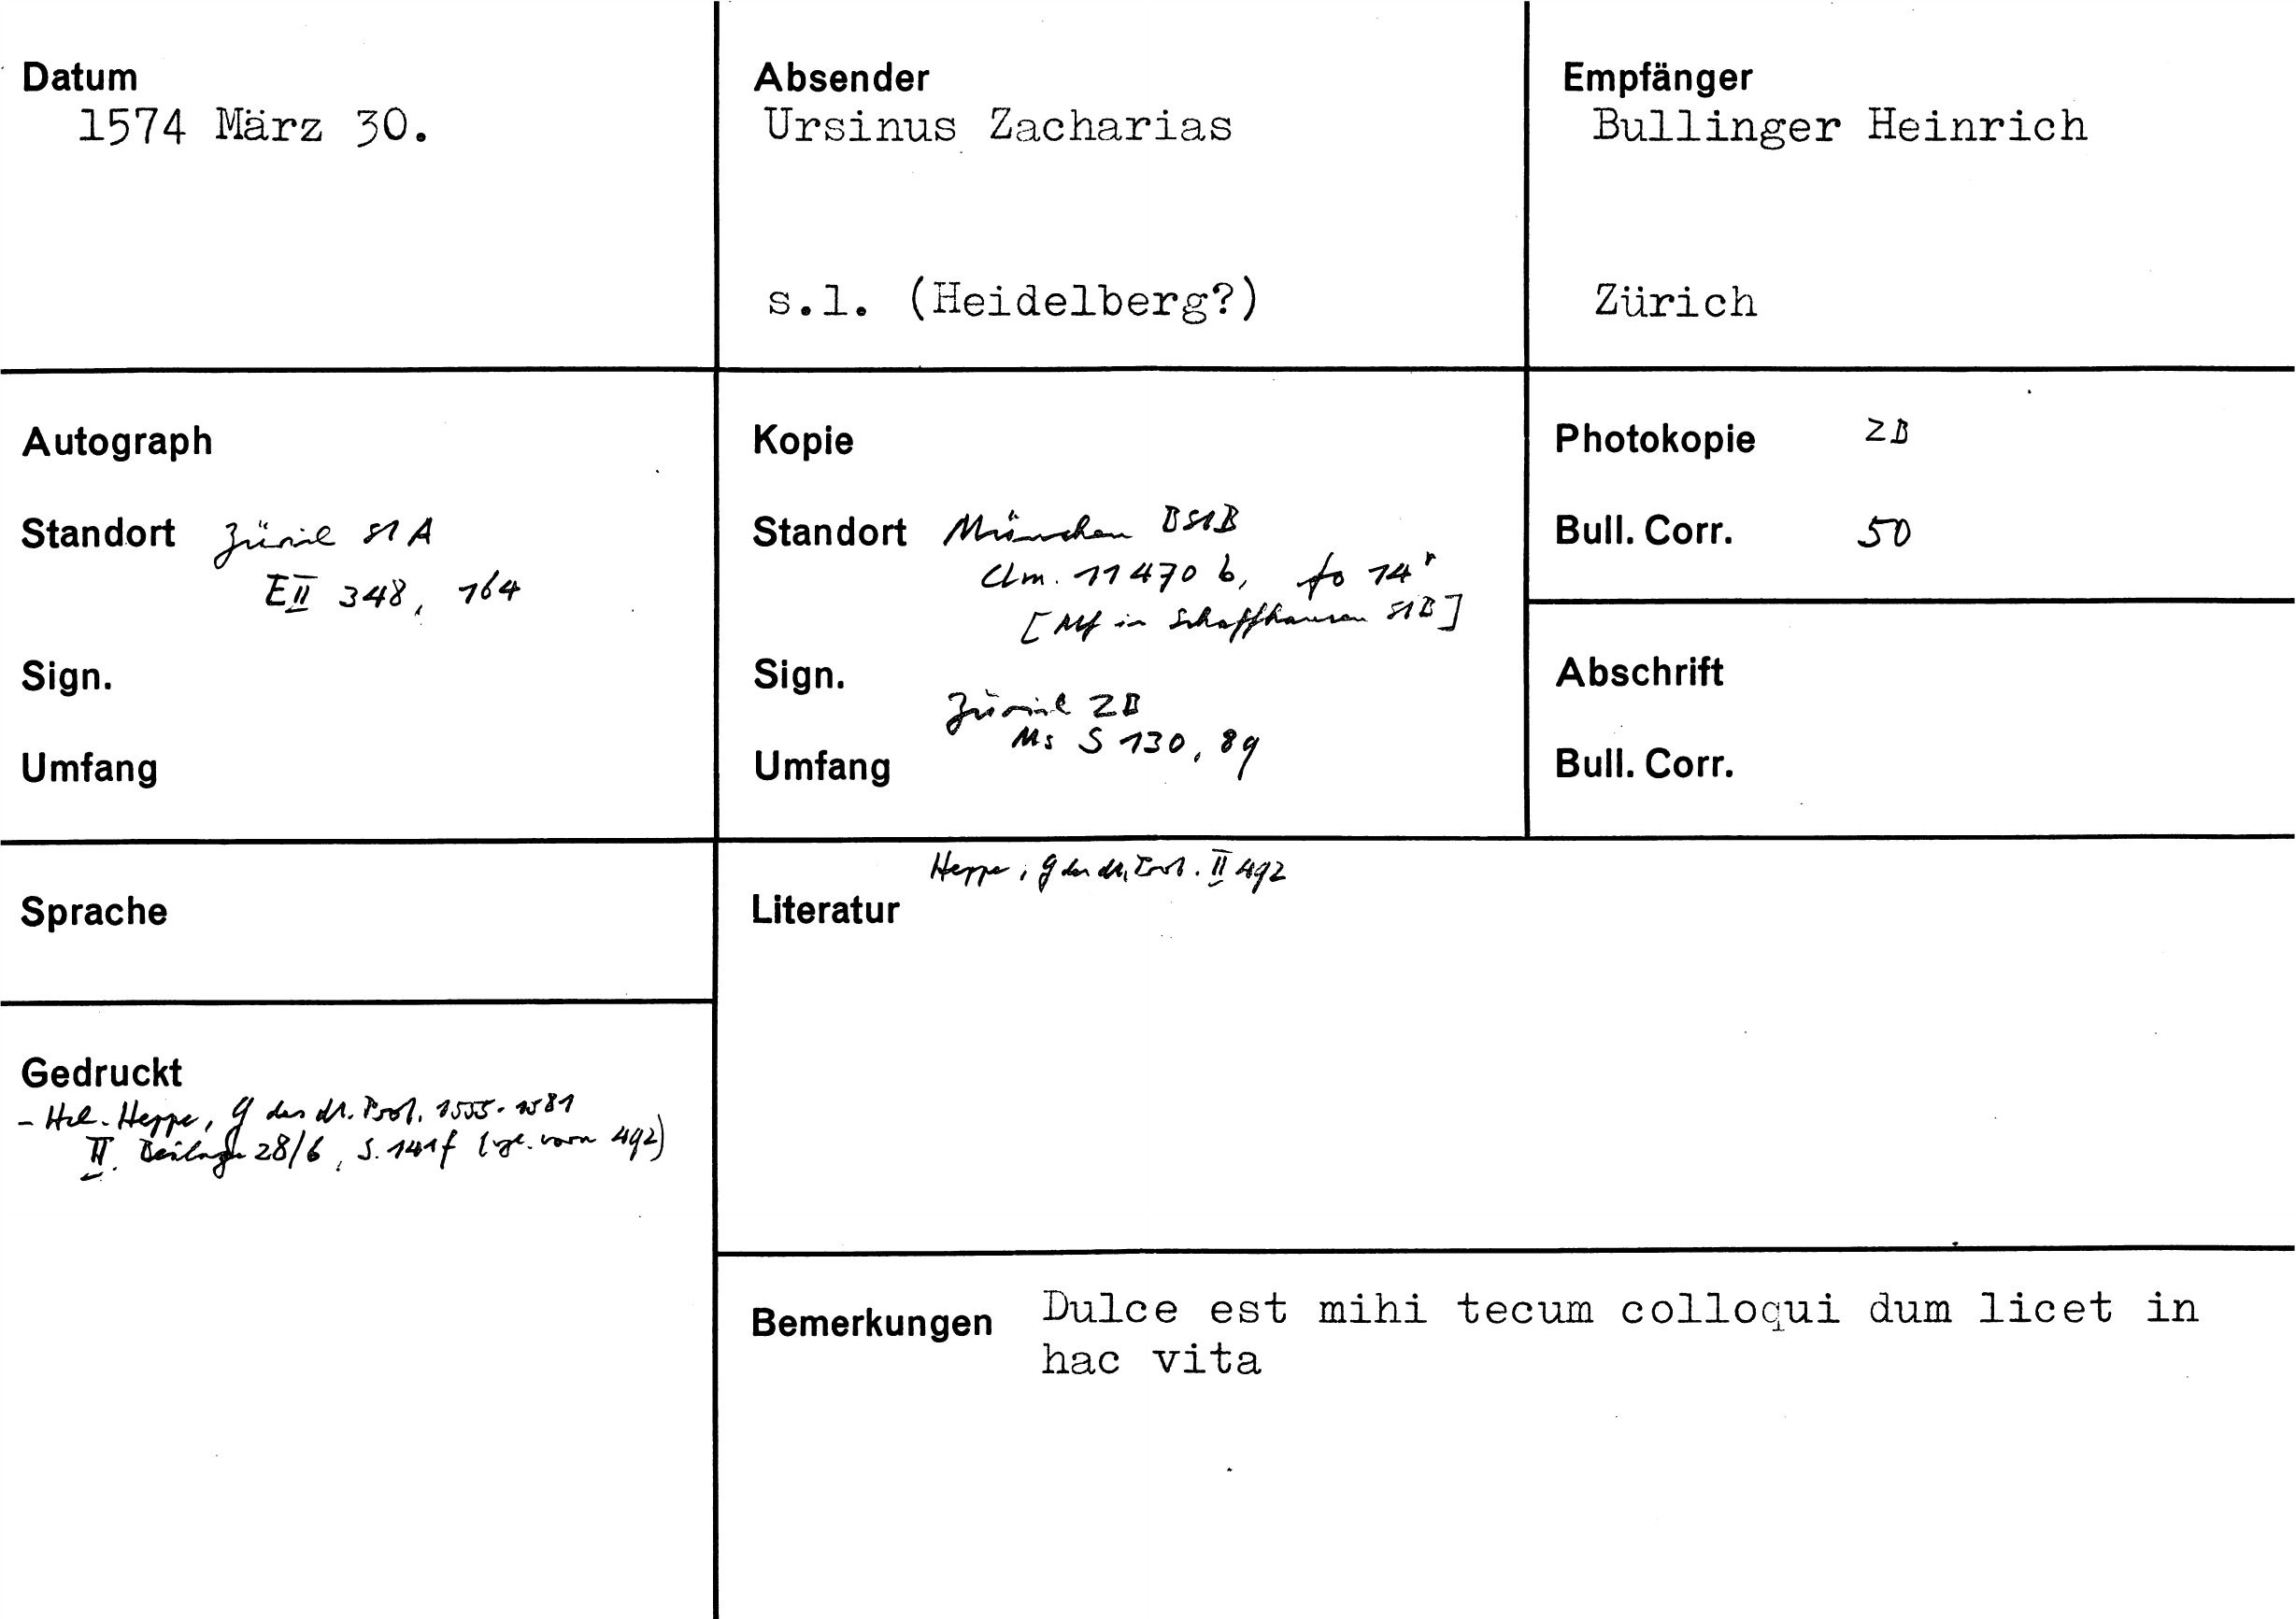 Datum
1574 März 30.
Absender
Ursinus Zacharias
s.l. (Heidelberg?)
Empfänger
Bullinger Heinrich
Zürich
Autograph
Standort Zürich StA
E II 348, 164
Sign.
Umfang
Kopie
Standort München BStB
Clm. 11470 b, fo 14r
[Mf in Schaffhausen StB]
Sign.
Zürich ZB
Ms S 130, 89
Umfang
Photokopie ZB
Bull. Corr. 50
Abschrift
Bull. Corr.
Sprache
Literatur
Heppe, G des dt. Prot. II 492
Gedruckt
- Hch. Heppe, G des dt. Prot. 1555-1581
II. Beilage 28/6, S. 141f (vgl. vorn 492)
Bemerkungen Dulce est mihi tecum colloqui dum licet in
hac vita